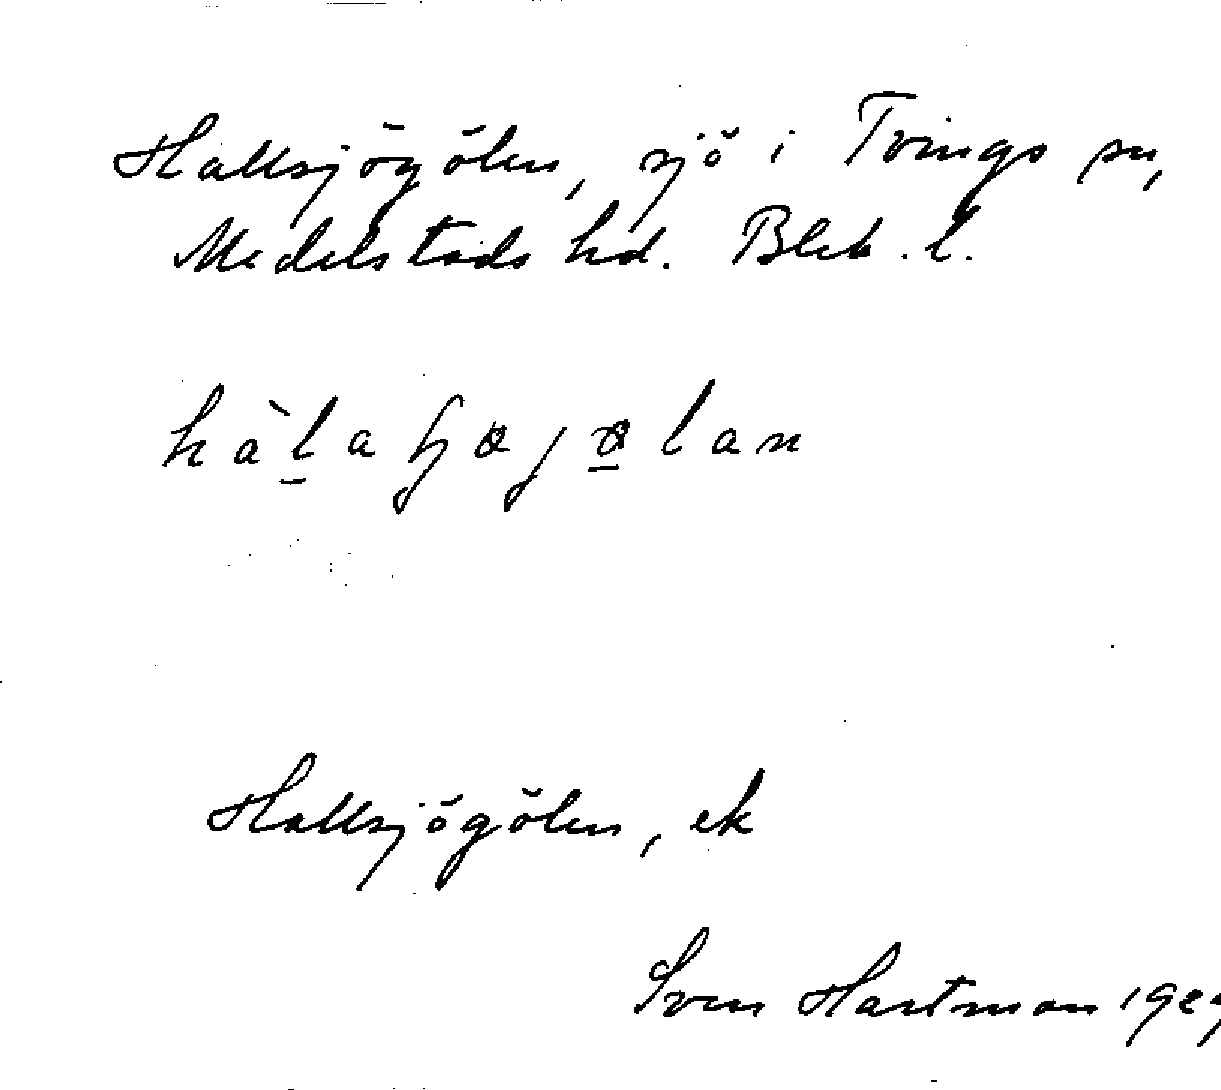 Hallsjögölen, sjö i Tvings sn,
Medelstads hd. Blek. l.
Hallsjögölen, ek
Sven Hartman